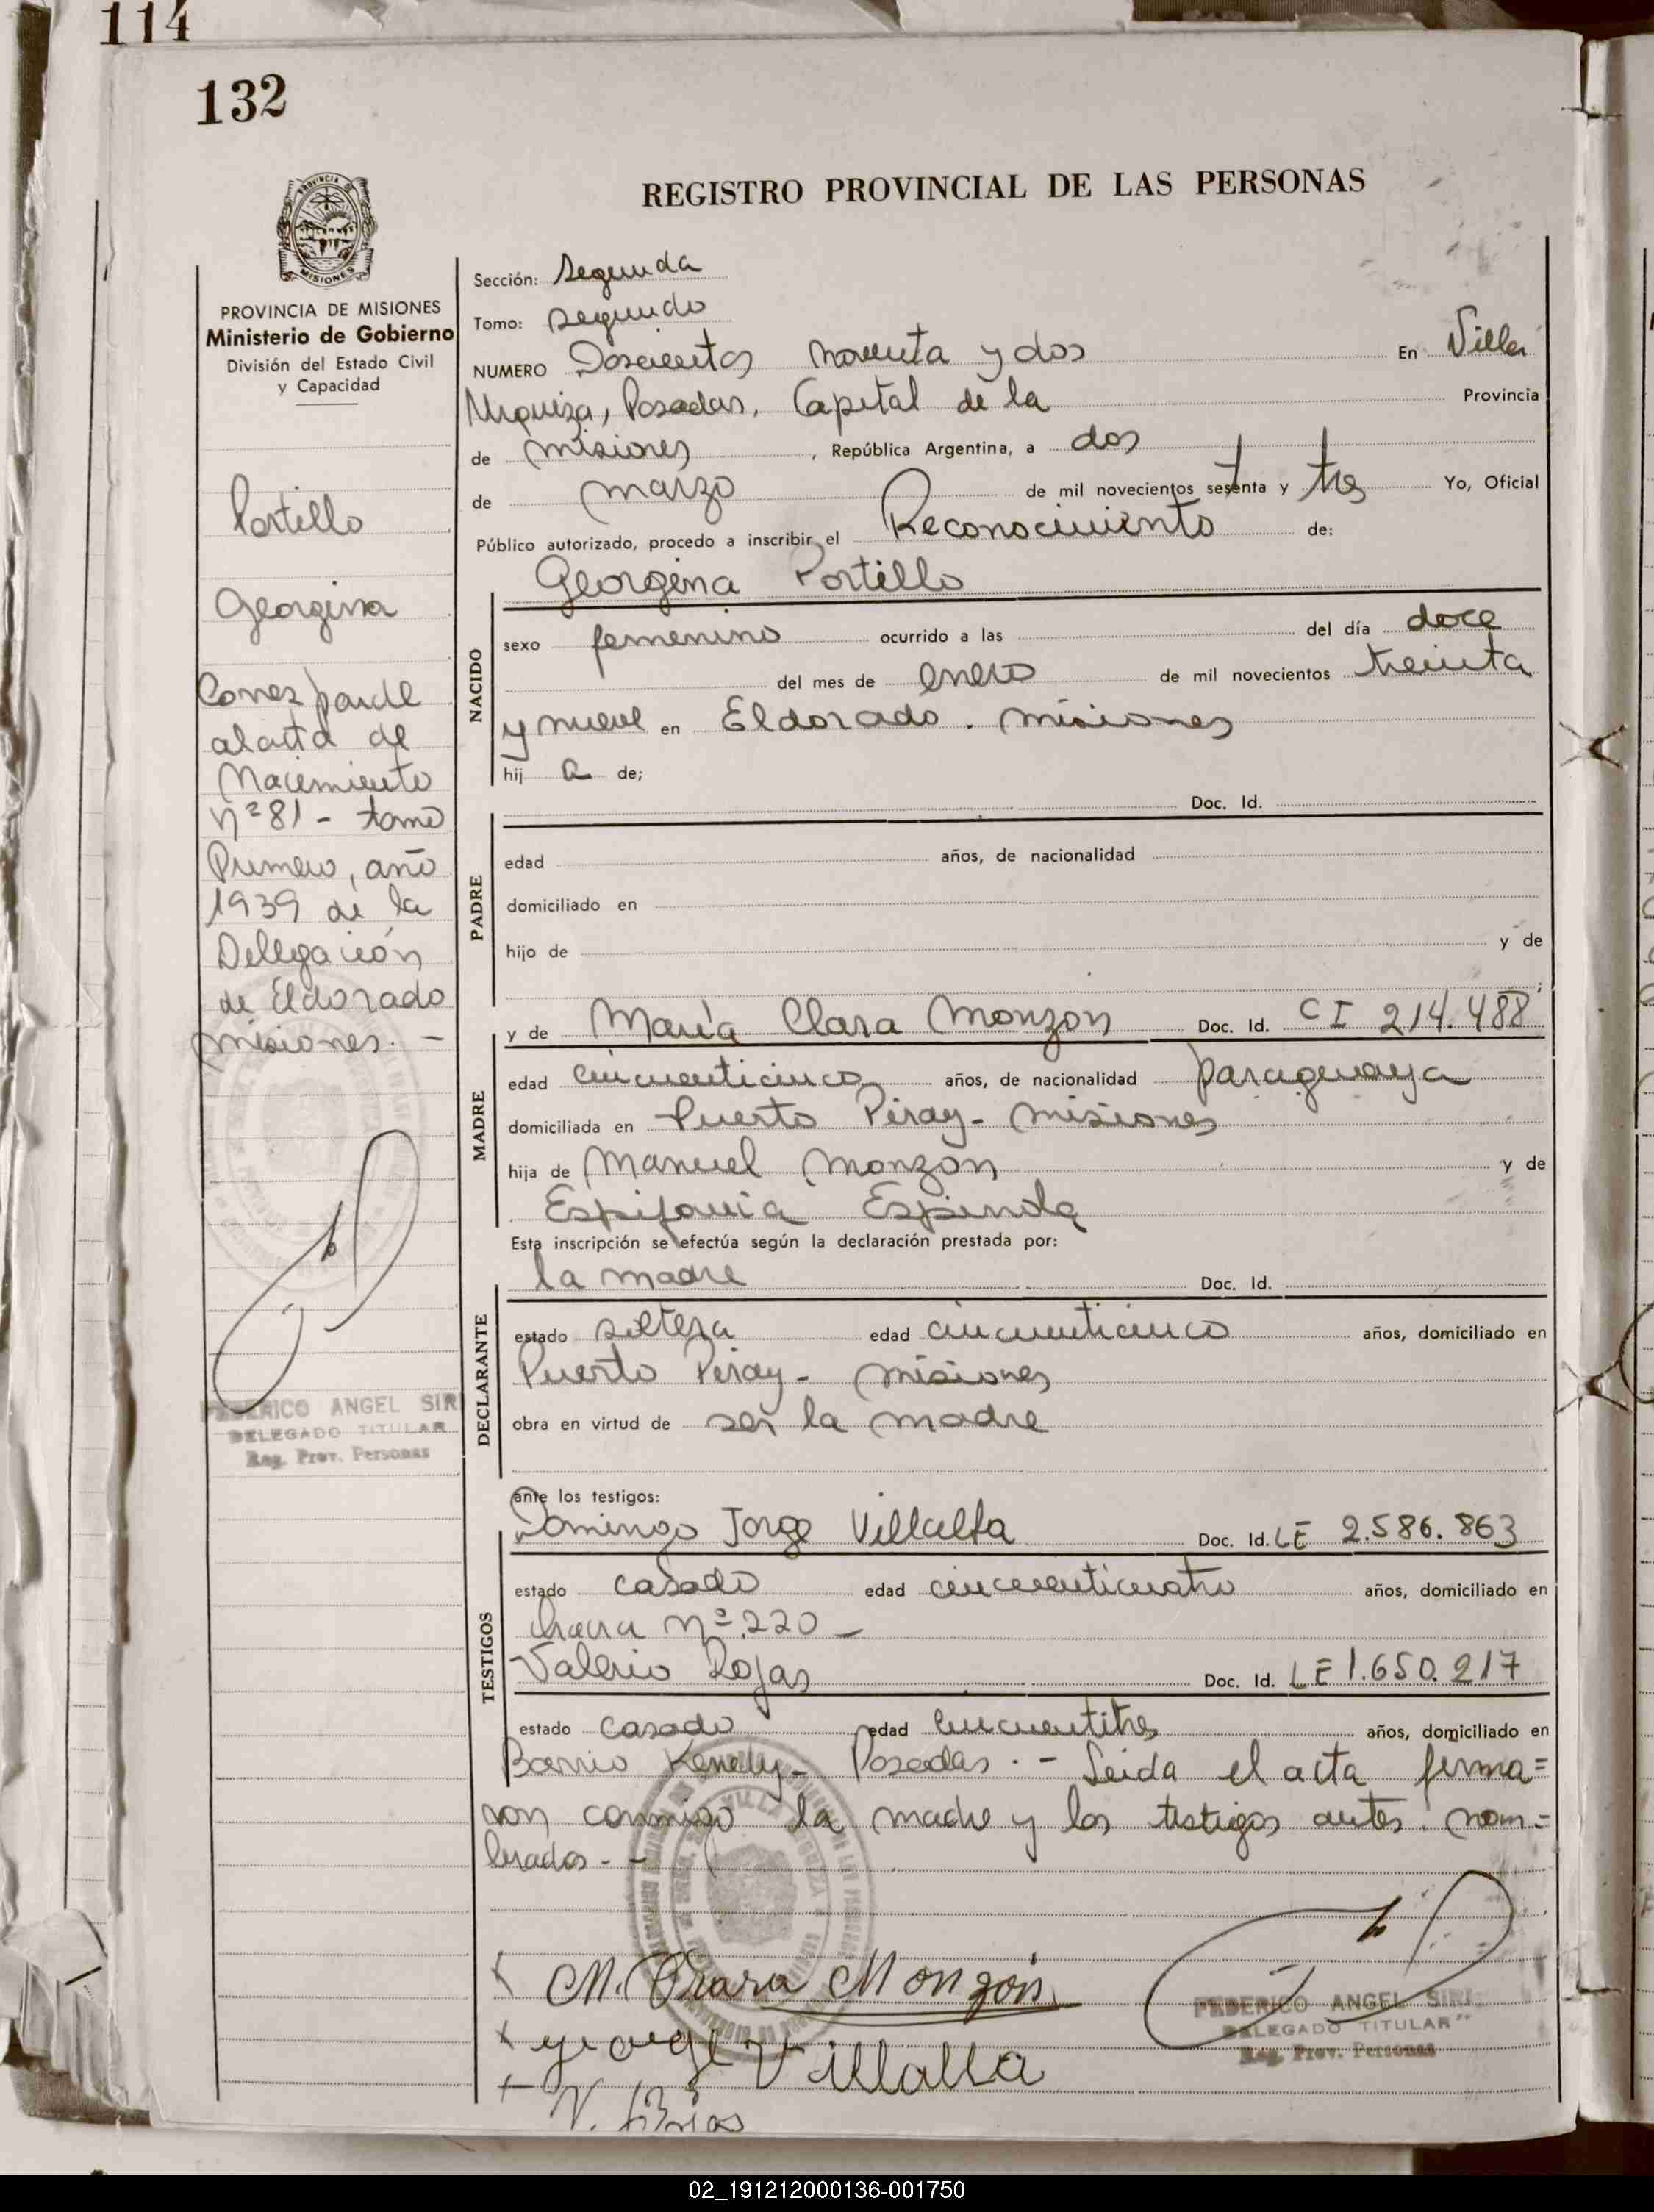 114
132
REGISTRO PROVINCIAL DE LAS PERSONAS
PROVINCIA DE
MISIONES
PROVINCIA DE MISIONES
Ministerio de Gobierno
División del Estado Civil
y Capacidad
Portillo
Georgina
Corresponde
al acta de
Nacimiento
Nº 81 - tomo
Primero, año
1939 de la
Delegación
de Eldorado
misiones. -
FEDERICO ANGEL SIRI
DELEGADO TITULAR
Reg. Prov. Personas
Sección: Segunda
Tomo: segundo
NUMERO Doscientos noventa y dos En Villa
Urquiza, Posadas, Capital de la Provincia
de misiones, República Argentina, a dos
de marzo de mil novecientos sesenta y tres Yo, Oficial
Público autorizado, procedo a inscribir el Reconocimiento de:
Georgina Portillo
NACIDO
sexo femenino ocurrido a las del día doce
del mes de enero de mil novecientos treinta
y nueve en Eldorado. misiones
hij a de;
Doc. Id.
PADRE
edad años, de nacionalidad
domiciliado en
hijo de y de
;
y de María Clara Monzon Doc. Id. CI 214.488
MADRE
edad cincuenticinco años, de nacionalidad paraguaya
domiciliada en Puerto Piray - misiones
hija de Manuel Monzón y de
Espifania Espinola
Esta inscripción se efectúa según la declaración prestada por:
la madre Doc. Id.
DECLARANTE
estado soltera edad cincuenticinco años, domiciliado en
Puerto Piray - misiones
obra en virtud de ser la madre
ante los testigos:
Domingo Jorge Villalba Doc. Id. LE 2.586.863
TESTIGOS
estado casado edad cincuenticuatro años, domiciliado en
Chacra Nº 220 -
Valerio Rojas Doc. Id. LE 1.650.217
estado casado edad cincuentitres años, domiciliado en
Barrio Kenedy - Posadas. - Leida el acta firma=
ron conmigo la madre y los testigos antes nom=
brados. -
M. Clara Monzón
Villalba
FEDERICO ANGEL SIRI
DELEGADO TITULAR
Reg. Prov. Personas
02_191212000136-001750